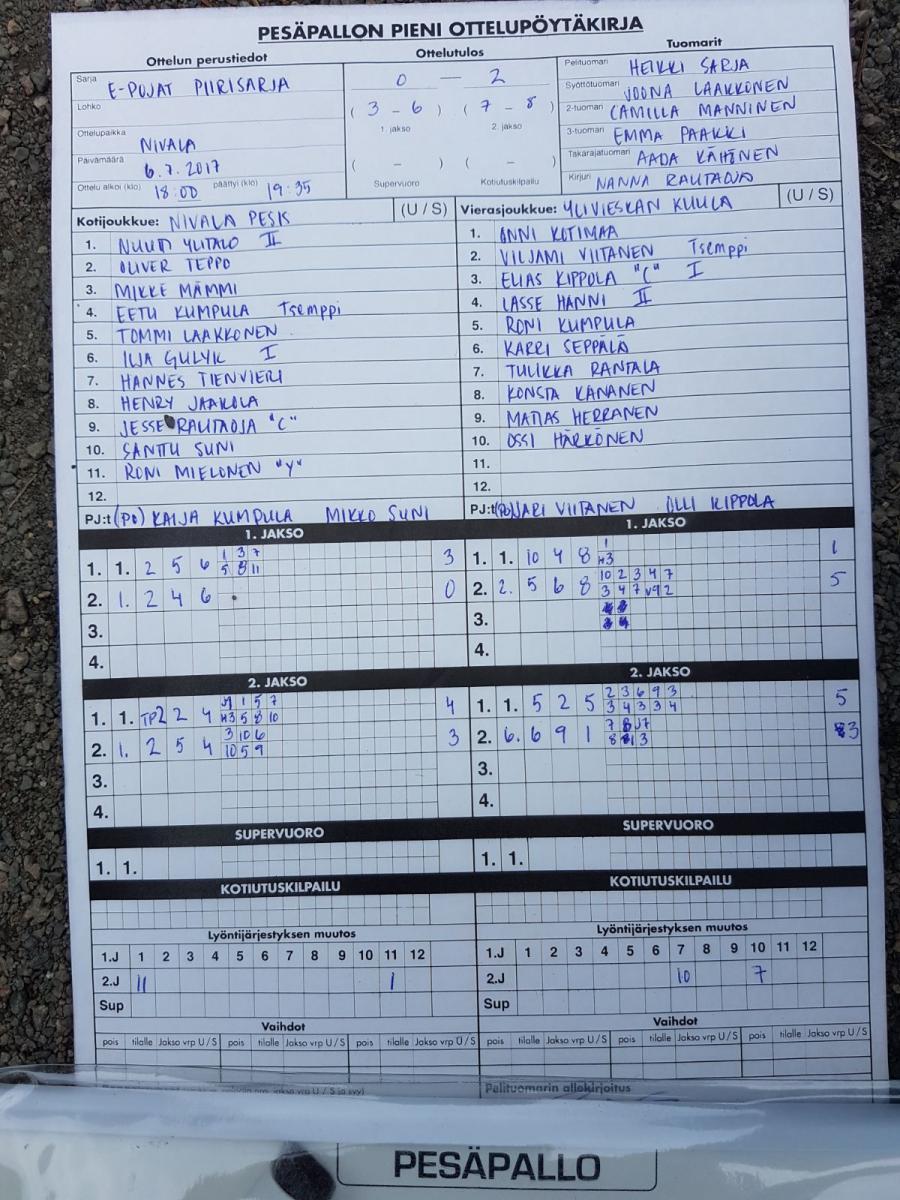 PESÄPALLON PIENI OTTELUPÖYTÄKIRJA
Ottelun perustiedot
Sarja E-POJAT PIIRISARJA
Lohko
Ottelupaikka NIVALA
Päivämäärä 6.7.2017
Ottelu alkoi (klo) 18:00 päättyi (klo) 19:35
Ottelutulos
0 — 2
( 3 - 6 ) ( 7 - 8 )
1. jakso 2. jakso
( - ) ( - )
Supervuoro Kotiutuskilpailu
Tuomarit
Pelituomari HEIKKI SARJA
Syöttötuomari JOONA LAAKKONEN
2-tuomari CAMILLA MANNINEN
3-tuomari EMMA PAAKKI
Takarajatuomari AADA KÄHÖNEN
Kirjuri NANNA RAUTAOJA
Kotijoukkue: NIVALA PESIS (U / S)
1. YLITALO II
2. OLIVER TEPPO
3. MIKKE MÄMMI
4. EETU KUMPULA Tsemppi
5. TOMMI LAAKKONEN
6. ILJA GULYK I
7. HANNES TIENVIERI
8. HENRY JAAKOLA
9. JESSE RAUTAOJA "C"
10. SANTTU SUNI
11. RONI MIELONEN "Y"
12.
PJ:t (PO) KAIJA KUMPULA MIKKO SUNI
Vierasjoukkue: YLIVIESKAN KUULA (U / S)
1. ONNI KOTIMAA
2. VILJAMI VIITANEN Tsemppi
3. ELIAS KIPPOLA "C" I
4. LASSE HANNI II
5. RONI KUMPULA
6. KARRI SEPPÄLÄ
7. TULIKKA RANTALA
8. KONSTA KANANEN
9. MATIAS HERRANEN
10. OSSI HÄRKÖNEN
11.
12.
PJ:t (PO) JARI VIITANEN OLLI KIPPOLA
1. JAKSO
1. 1. 2 5 6 1 3 7 3
5 8 11
2. 1. 2 4 6 0
3.
4.
1. JAKSO
1. 1. 10 4 8 1 1
H3
2. 2. 5 6 8 10 2 3 4 7 5
3 4 7 V9 2
3.
4.
2. JAKSO
1. 1. TP2 2 4 1 5 7 4
H3 5 8 10
2. 1. 2 5 4 3 10 6 3
10 5 9
3.
4.
2. JAKSO
1. 1. 5 2 5 2 3 6 9 3 5
3 4 3 3 4
2. 6. 6 9 1 7 3
3.
4.
SUPERVUORO
1. 1.
SUPERVUORO
1. 1.
KOTIUTUSKILPAILU
KOTIUTUSKILPAILU
Lyöntijärjestyksen muutos
1.J 1 2 3 4 5 6 7 8 9 10 11 12
2.J 11 1
Sup
Lyöntijärjestyksen muutos
1.J 1 2 3 4 5 6 7 8 9 10 11 12
2.J 10 7
Sup
Vaihdot
pois tilalle Jakso vrp U / S pois tilalle Jakso vrp U / S pois tilalle Jakso vrp U / S
Vaihdot
pois tilalle Jakso vrp U / S pois tilalle Jakso vrp U / S pois tilalle Jakso vrp U / S
Pelituomarin allekirjoitus
PESÄPALLO